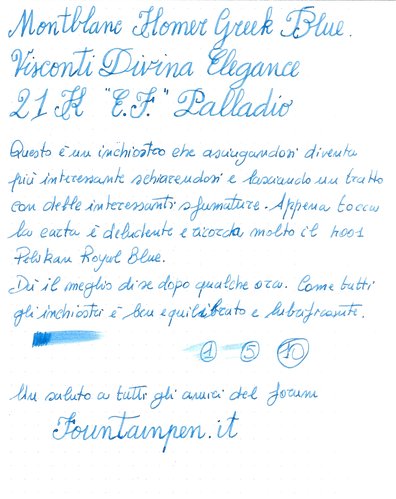 Montblanc Homer Greek Blue.
Visconti Divina Elegance
21 K "E.F." Palladio
Questo è un inchiostro che asciugandosi diventa
più interessante schiarendosi e lasciando un tratto
con delle interessanti sfumature. Appena tocca
la carta è deludente e ricorda molto il 4001
Pelikan Royal Blue.
Dà il meglio di se dopo qualche ora. Come tutti
gli inchiostri è ben equilibrato e lubrificante.
1 5 10
Un saluto a tutti gli amici del forum
Fountainpen.it